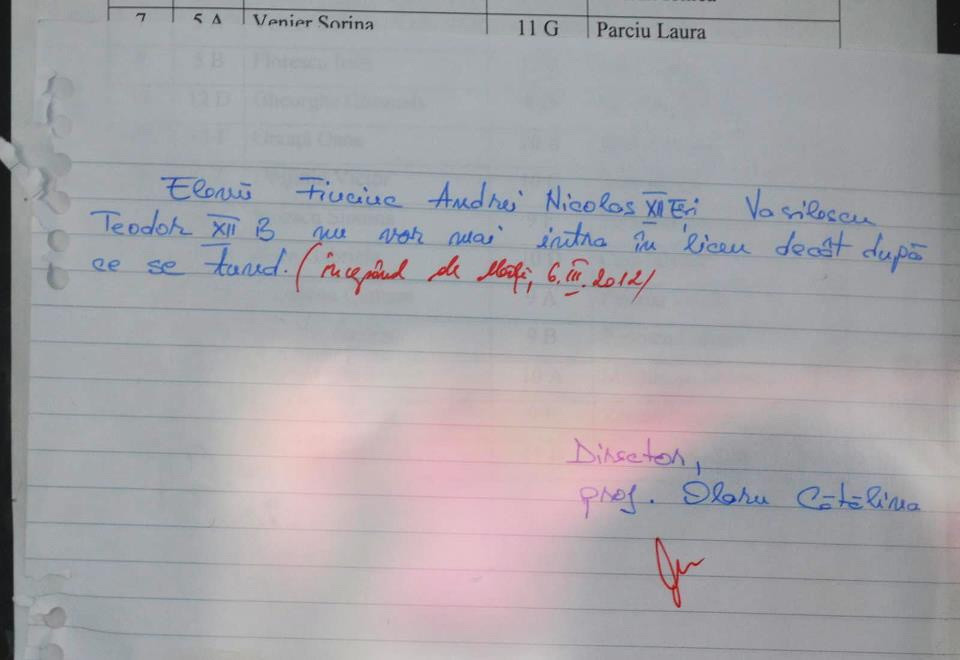 7 5 A Venier Sorina 11 G Parciu Laura
Elevii Fiuciuc Andrei Nicolas XII Eri Vasilescu
Teodor XII B nu vor mai intra în liceu decât după
ce se tund. (începând de Marți, 6.III.2012)
Director,
prof. Olaru Cătălina